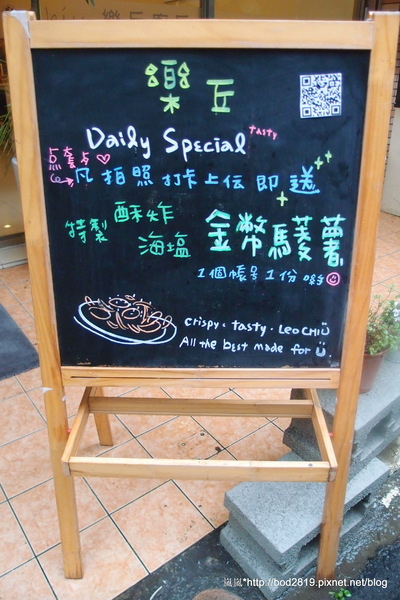 樂丘
Daily Special tasty
点套占♡
凡拍照打卡上伝即送
特製 酥炸 海塩 金幣馬菱薯
1個帳号1份喲
crispy. tasty. LeoCHiU
All the best made for U.
嵐嵐*http://bod2819.pixnet.net/blog